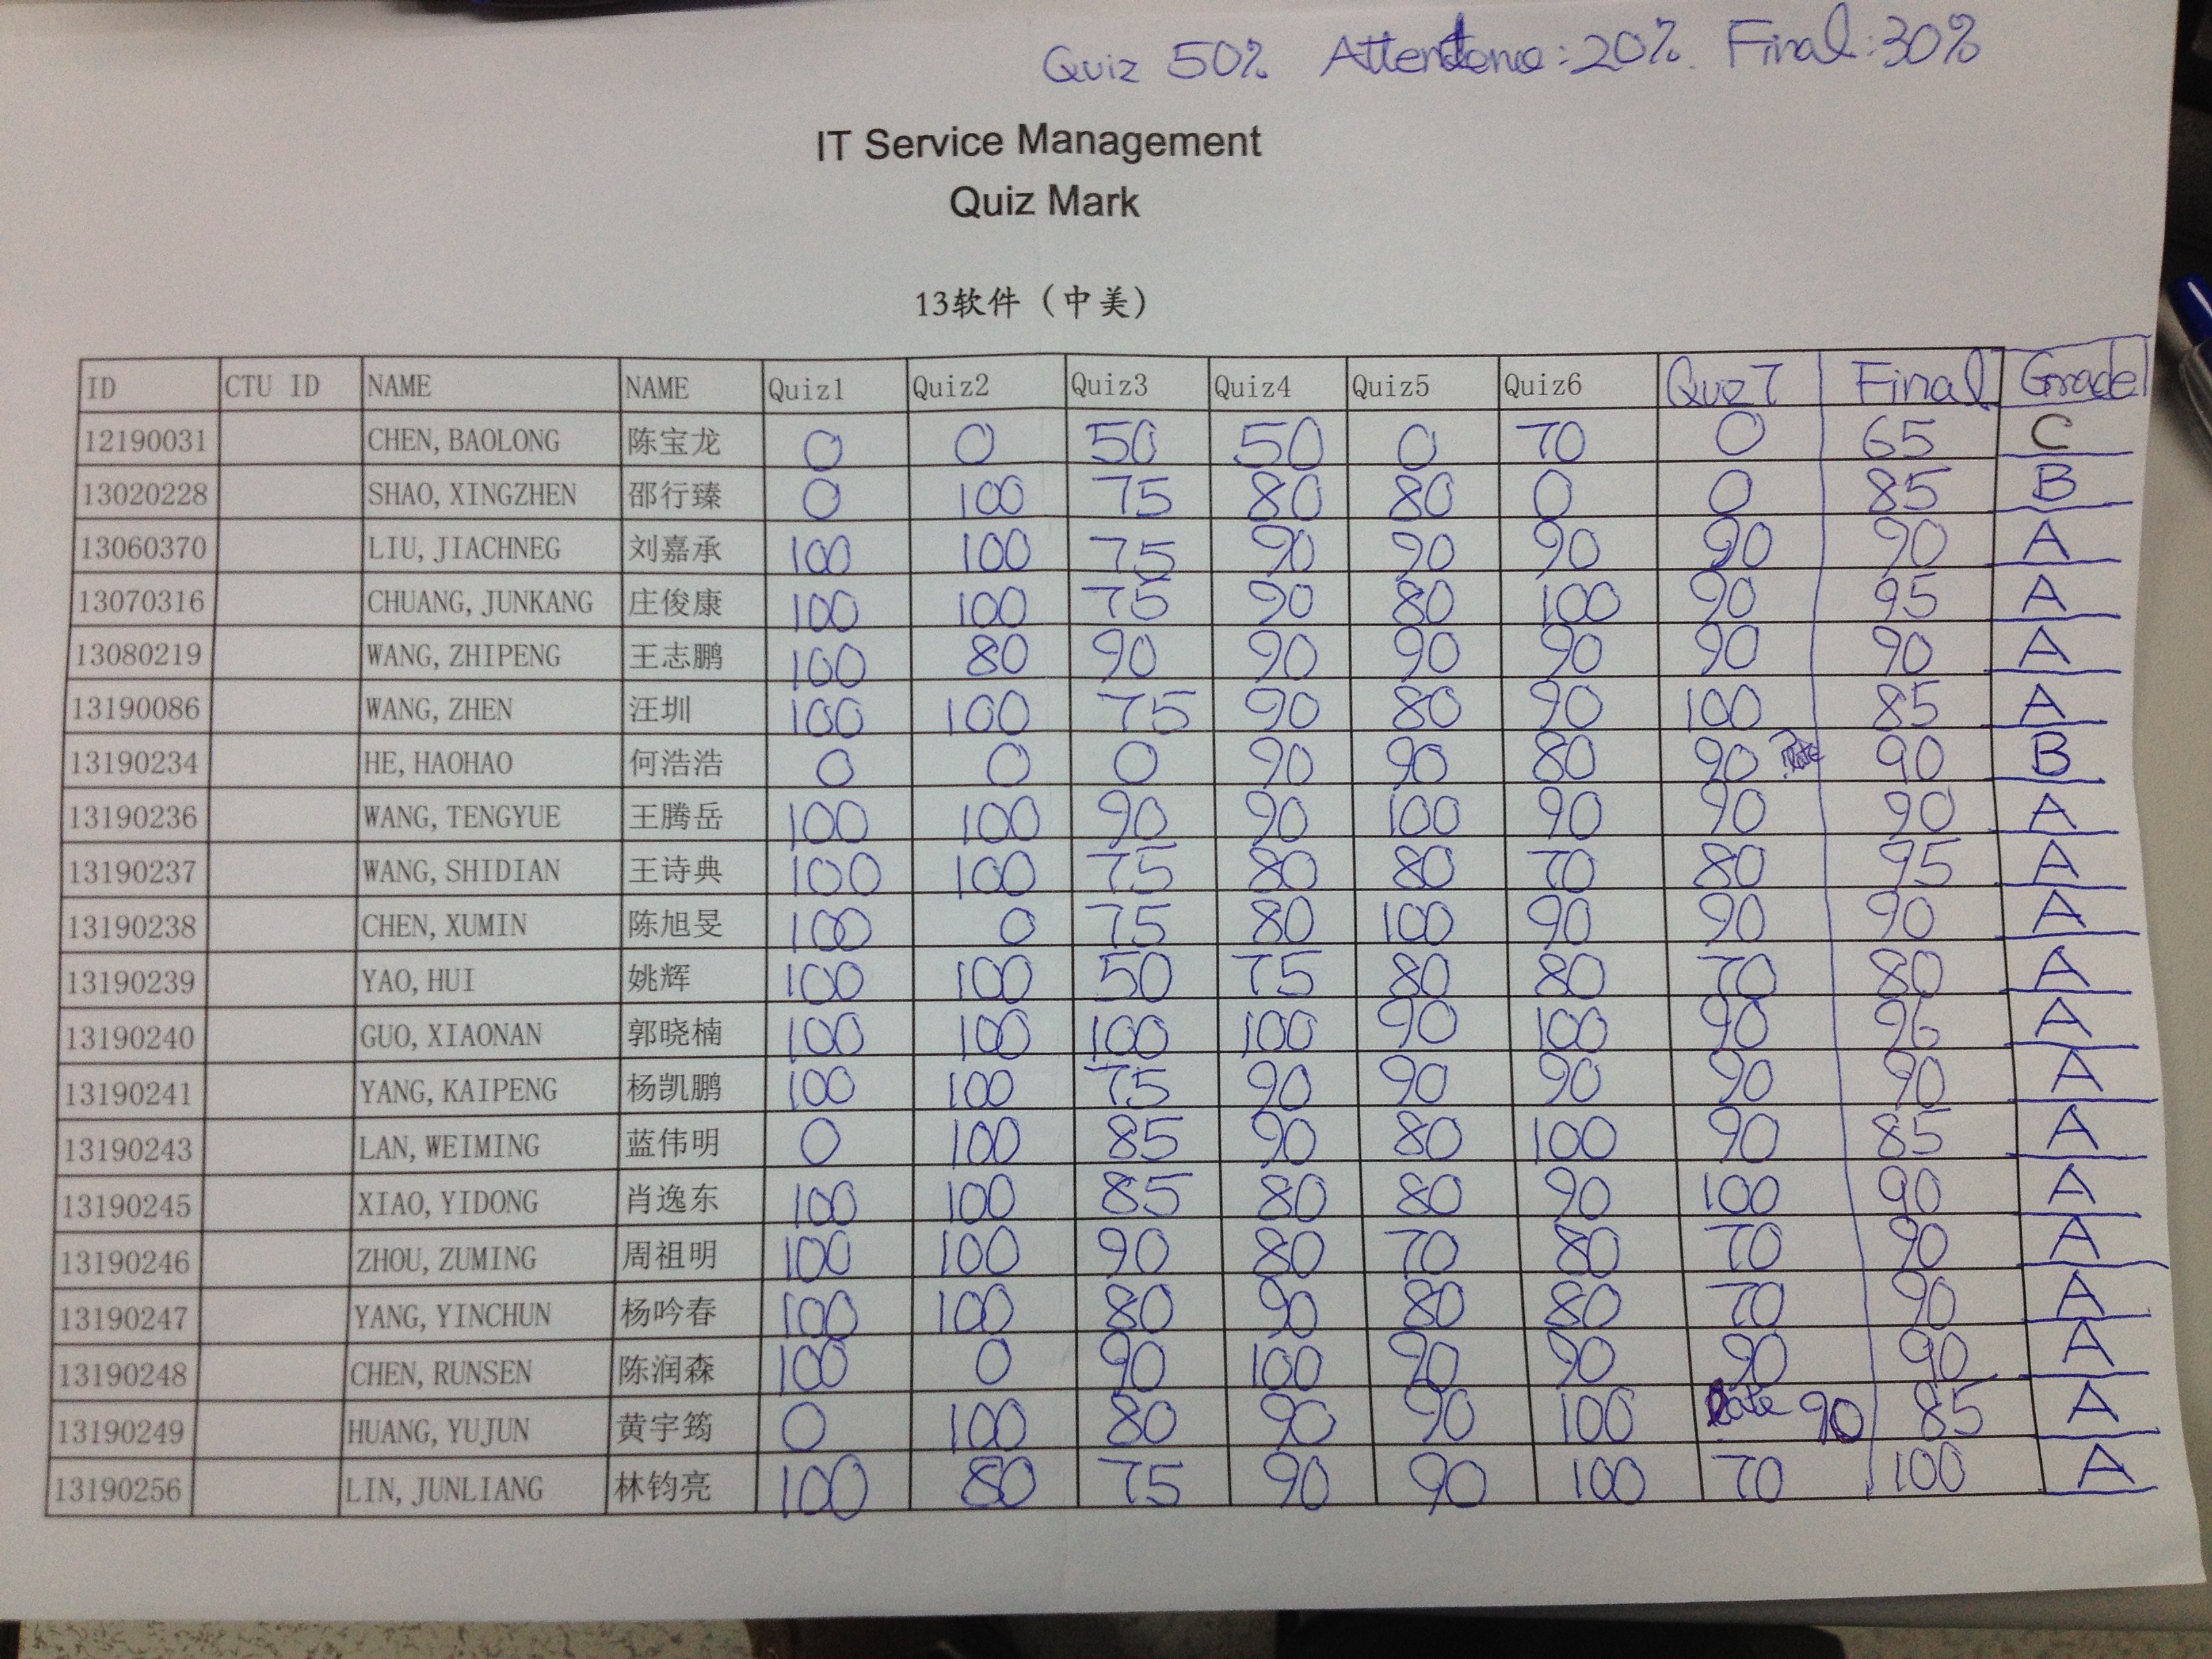 Quiz 50% Attendance:20%. Final:30%
IT Service Management
Quiz Mark
13软件（中美）
ID CTU ID NAME NAME Quiz1 Quiz2 Quiz3 Quiz4 Quiz5 Quiz6 Quiz7 Final Grade
12190031 CHEN, BAOLONG 陈宝龙 0 0 50 50 0 70 0 65 C
13020228 SHAO, XINGZHEN 邵行臻 0 100 75 80 80 0 0 85 B
13060370 LIU, JIACHNEG 刘嘉承 100 100 75 90 90 90 90 90 A
13070316 CHUANG, JUNKANG 庄俊康 100 100 75 90 80 100 90 95 A
13080219 WANG, ZHIPENG 王志鹏 100 80 90 90 90 90 90 90 A
13190086 WANG, ZHEN 汪圳 100 100 75 90 80 90 100 85 A
13190234 HE, HAOHAO 何浩浩 0 0 0 90 90 80 90 90 B
13190236 WANG, TENGYUE 王腾岳 100 100 90 90 100 90 90 90 A
13190237 WANG, SHIDIAN 王诗典 100 100 75 80 80 70 80 95 A
13190238 CHEN, XUMIN 陈旭旻 100 0 75 80 100 90 90 90 A
13190239 YAO, HUI 姚辉 100 100 50 75 80 80 70 80 A
13190240 GUO, XIAONAN 郭晓楠 100 100 100 100 90 100 90 96 A
13190241 YANG, KAIPENG 杨凯鹏 100 100 75 90 90 90 90 90 A
13190243 LAN, WEIMING 蓝伟明 0 100 85 90 80 100 90 85 A
13190245 XIAO, YIDONG 肖逸东 100 100 85 80 80 90 100 90 A
13190246 ZHOU, ZUMING 周祖明 100 100 90 80 70 80 70 90 A
13190247 YANG, YINCHUN 杨吟春 100 100 80 90 80 80 70 90 A
13190248 CHEN, RUNSEN 陈润森 100 0 90 100 90 90 90 90 A
13190249 HUANG, YUJUN 黄宇筠 0 100 80 90 90 100 90 85 A
13190256 LIN, JUNLIANG 林钧亮 100 80 75 90 90 100 70 100 A